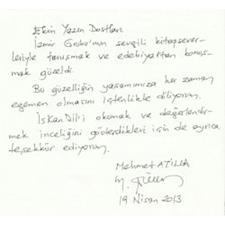 Ekin Yazın Dostları
İzmir Grubu'nun sevgili kitapsever-
leriyle tanışmak ve edebiyattan konuş-
mak güzeldi.
Bu güzelliğin yaşamımıza her zaman
egemen olmasını içtenlikle diliyorum.
İskandil'i okumak ve değerlendir-
mek inceliğini gösterdikleri için de ayrıca
teşekkür ediyorum.
Mehmet ATİLLA
19 Nisan 2013